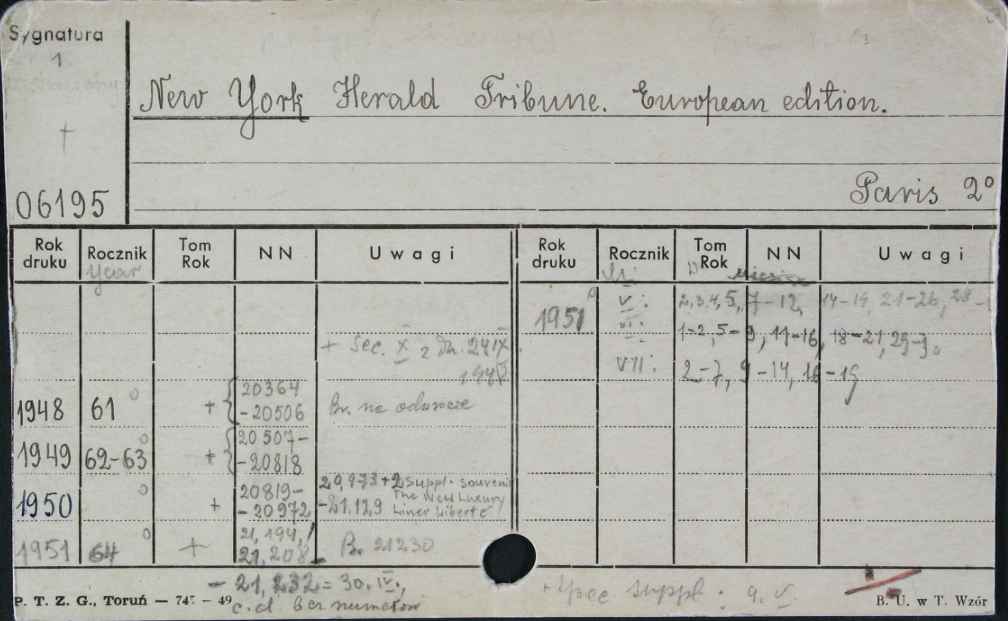 Sygnatura
1
New York Herald Tribune. European edition.
06195
Paris 2°
Rok druku Rocznik Tom Rok NN Uwagi Rok druku Rocznik Tom Rok NN Uwagi
Year
1951 V: 2,3,4,5, 7-12, 14-19, 21-26, 28-
VI: 1-2, 5-9, 11-16, 18-21, 25-30
+ Sec. X z dn. 24 IX
VII: 2-7, 9-14, 16-19
1948 61 + { 20364 - 20506
1949 62-63 + { 20507- -20818
1950 + 20819- -20972 20,973 + 2 suppl. souvenir The New Luxury Liner Liberté -21,129
1951 64 + 21,194, 21,208 Br. 21230
- 21,232 = 30.IV.,
c.d. bez numerów
suppl. 9. V.
P. T. Z. G., Toruń — 745 — 49
B. U. w T. Wzór